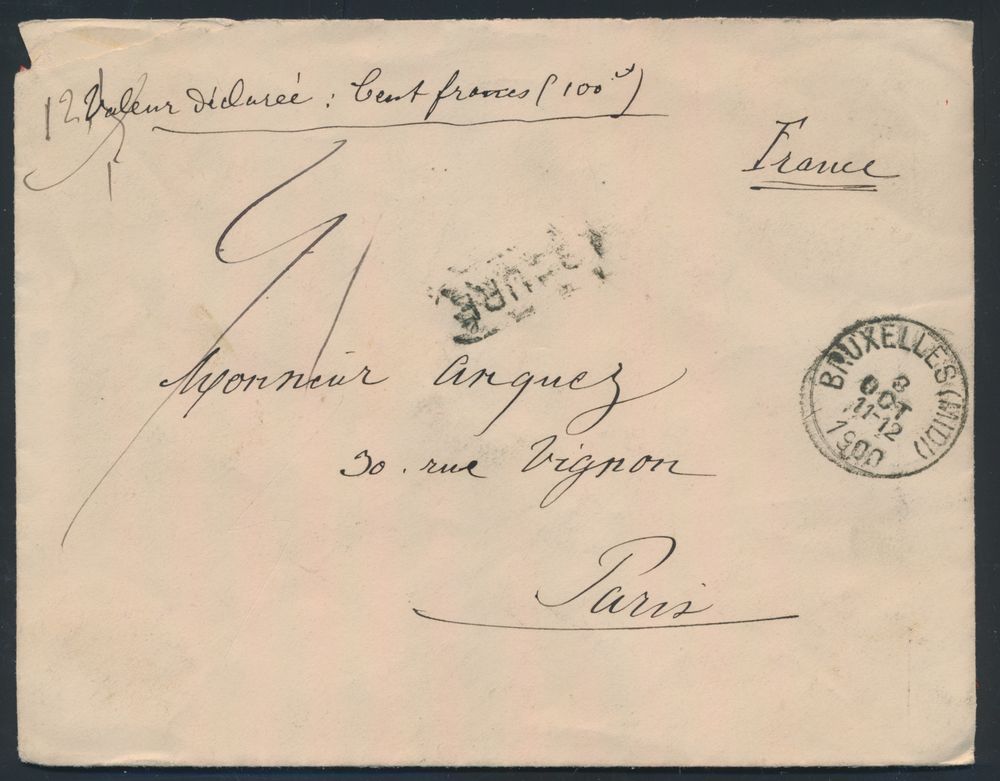 Valeur déclarée : Cent francs (100
France
Monsieur Arquez
30 . rue Vignon
Paris
BRUXELLES (MIDI)
8
OCT
11-12
1900